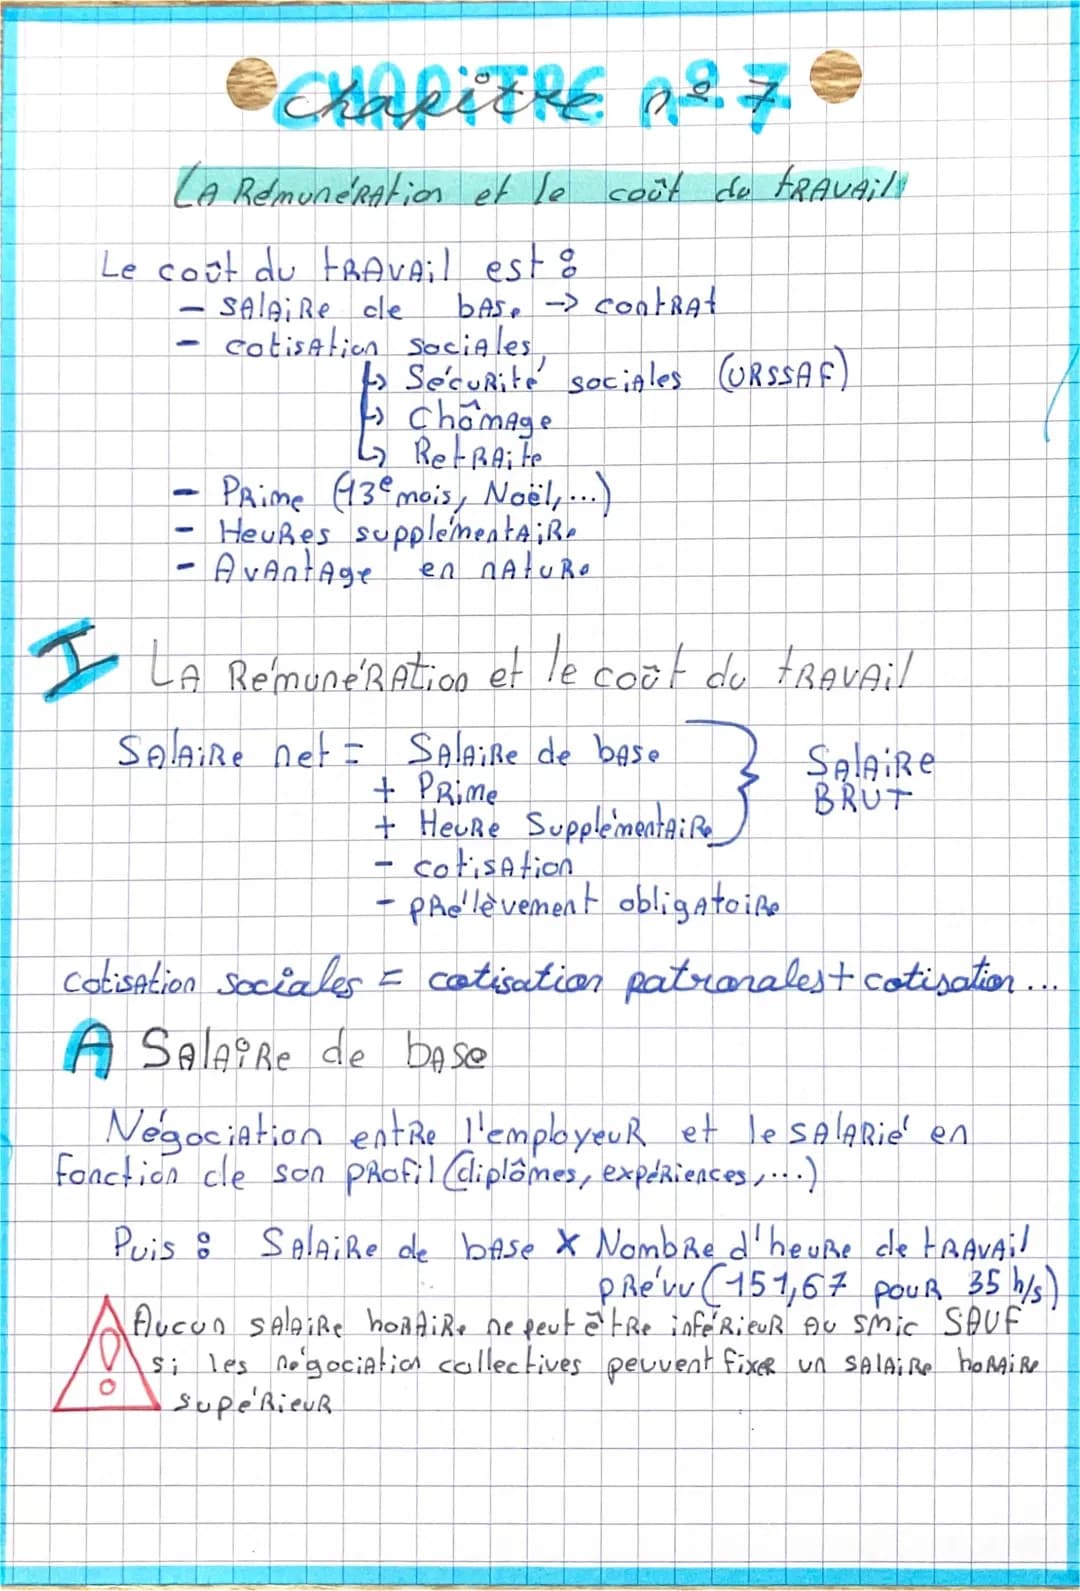 Chapitre n°7
La Rémunération et le coût du travail
Le coût du travail est :
- Salaire de base → contrat
- cotisation sociales
↳ Sécurité sociales (URSSAF)
↳ Chômage
↳ Retraite
- Prime (13e mois, Noël,...)
- Heures supplémentaire
- Avantage en nature
I La Rémunération et le coût du travail
Salaire net = Salaire de base
+ Prime
+ Heure Supplémentaire
} Salaire BRUT
- cotisation
- prélèvement obligatoire
cotisation sociales = cotisation patronales + cotisation...
A Salaire de base
Négociation entre l'employeur et le salarié en
fonction de son profil (diplômes, expériences,...)
Puis : Salaire de base x Nombre d'heure de travail
prévu (151,67 pour 35 h/s)
Aucun salaire horaire ne peut être inférieur au smic SAUF
si les négociation collectives peuvent fixer un salaire horaire
supérieur